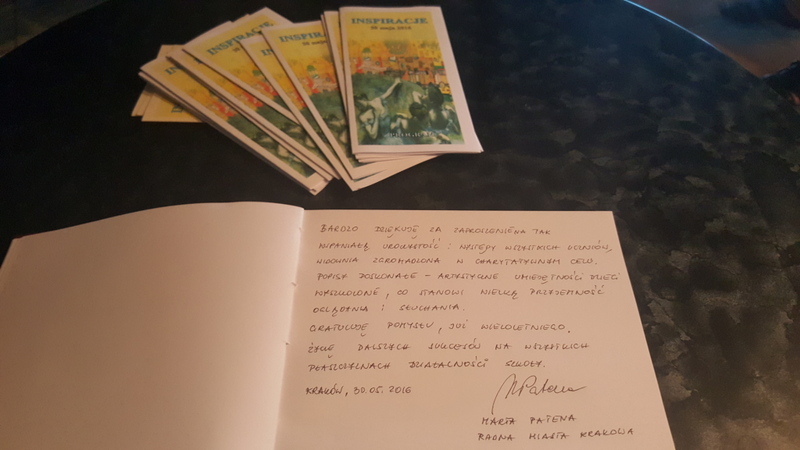 INSPIRACJE
30 maja 2016
INSPIRACJE
INSPIRACJE
BARDZO DZIĘKUJĘ ZA ZAPROSZENIE NA TAK
WSPANIAŁĄ UROCZYSTOŚĆ I WYSTĘPY WSZYSTKICH UCZNIÓW,
WIDOWNIA ZGROMADZONA W CHARYTATYWNYM CELU.
POPISY DOSKONAŁE - ARTYSTYCZNE UMIEJĘTNOŚCI DZIECI
WYSZKOLONE, CO STANOWI WIELKĄ PRZYJEMNOŚĆ
OGLĄDANIA I SŁUCHANIA.
GRATULUJĘ POMYSŁU, JUŻ WIELOLETNIEGO.
ŻYCZĘ DALSZYCH SUKCESÓW NA WSZYSTKICH
PŁASZCZYZNACH DZIAŁALNOŚCI SZKOŁY.
KRAKÓW, 30.05.2016
MPatena
MARTA PATENA
RADNA MIASTA KRAKOWA